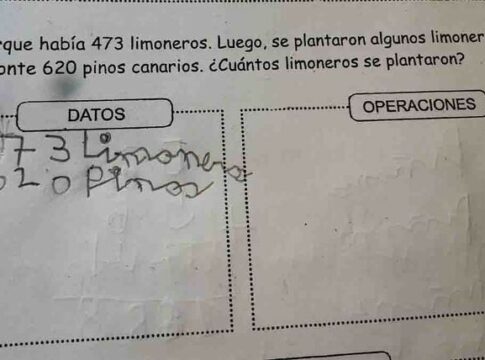 que había 473 limoneros. Luego, se plantaron algunos limoner
onte 620 pinos canarios. ¿Cuántos limoneros se plantaron?
DATOS
OPERACIONES
73 Limoneros
20 Pinos